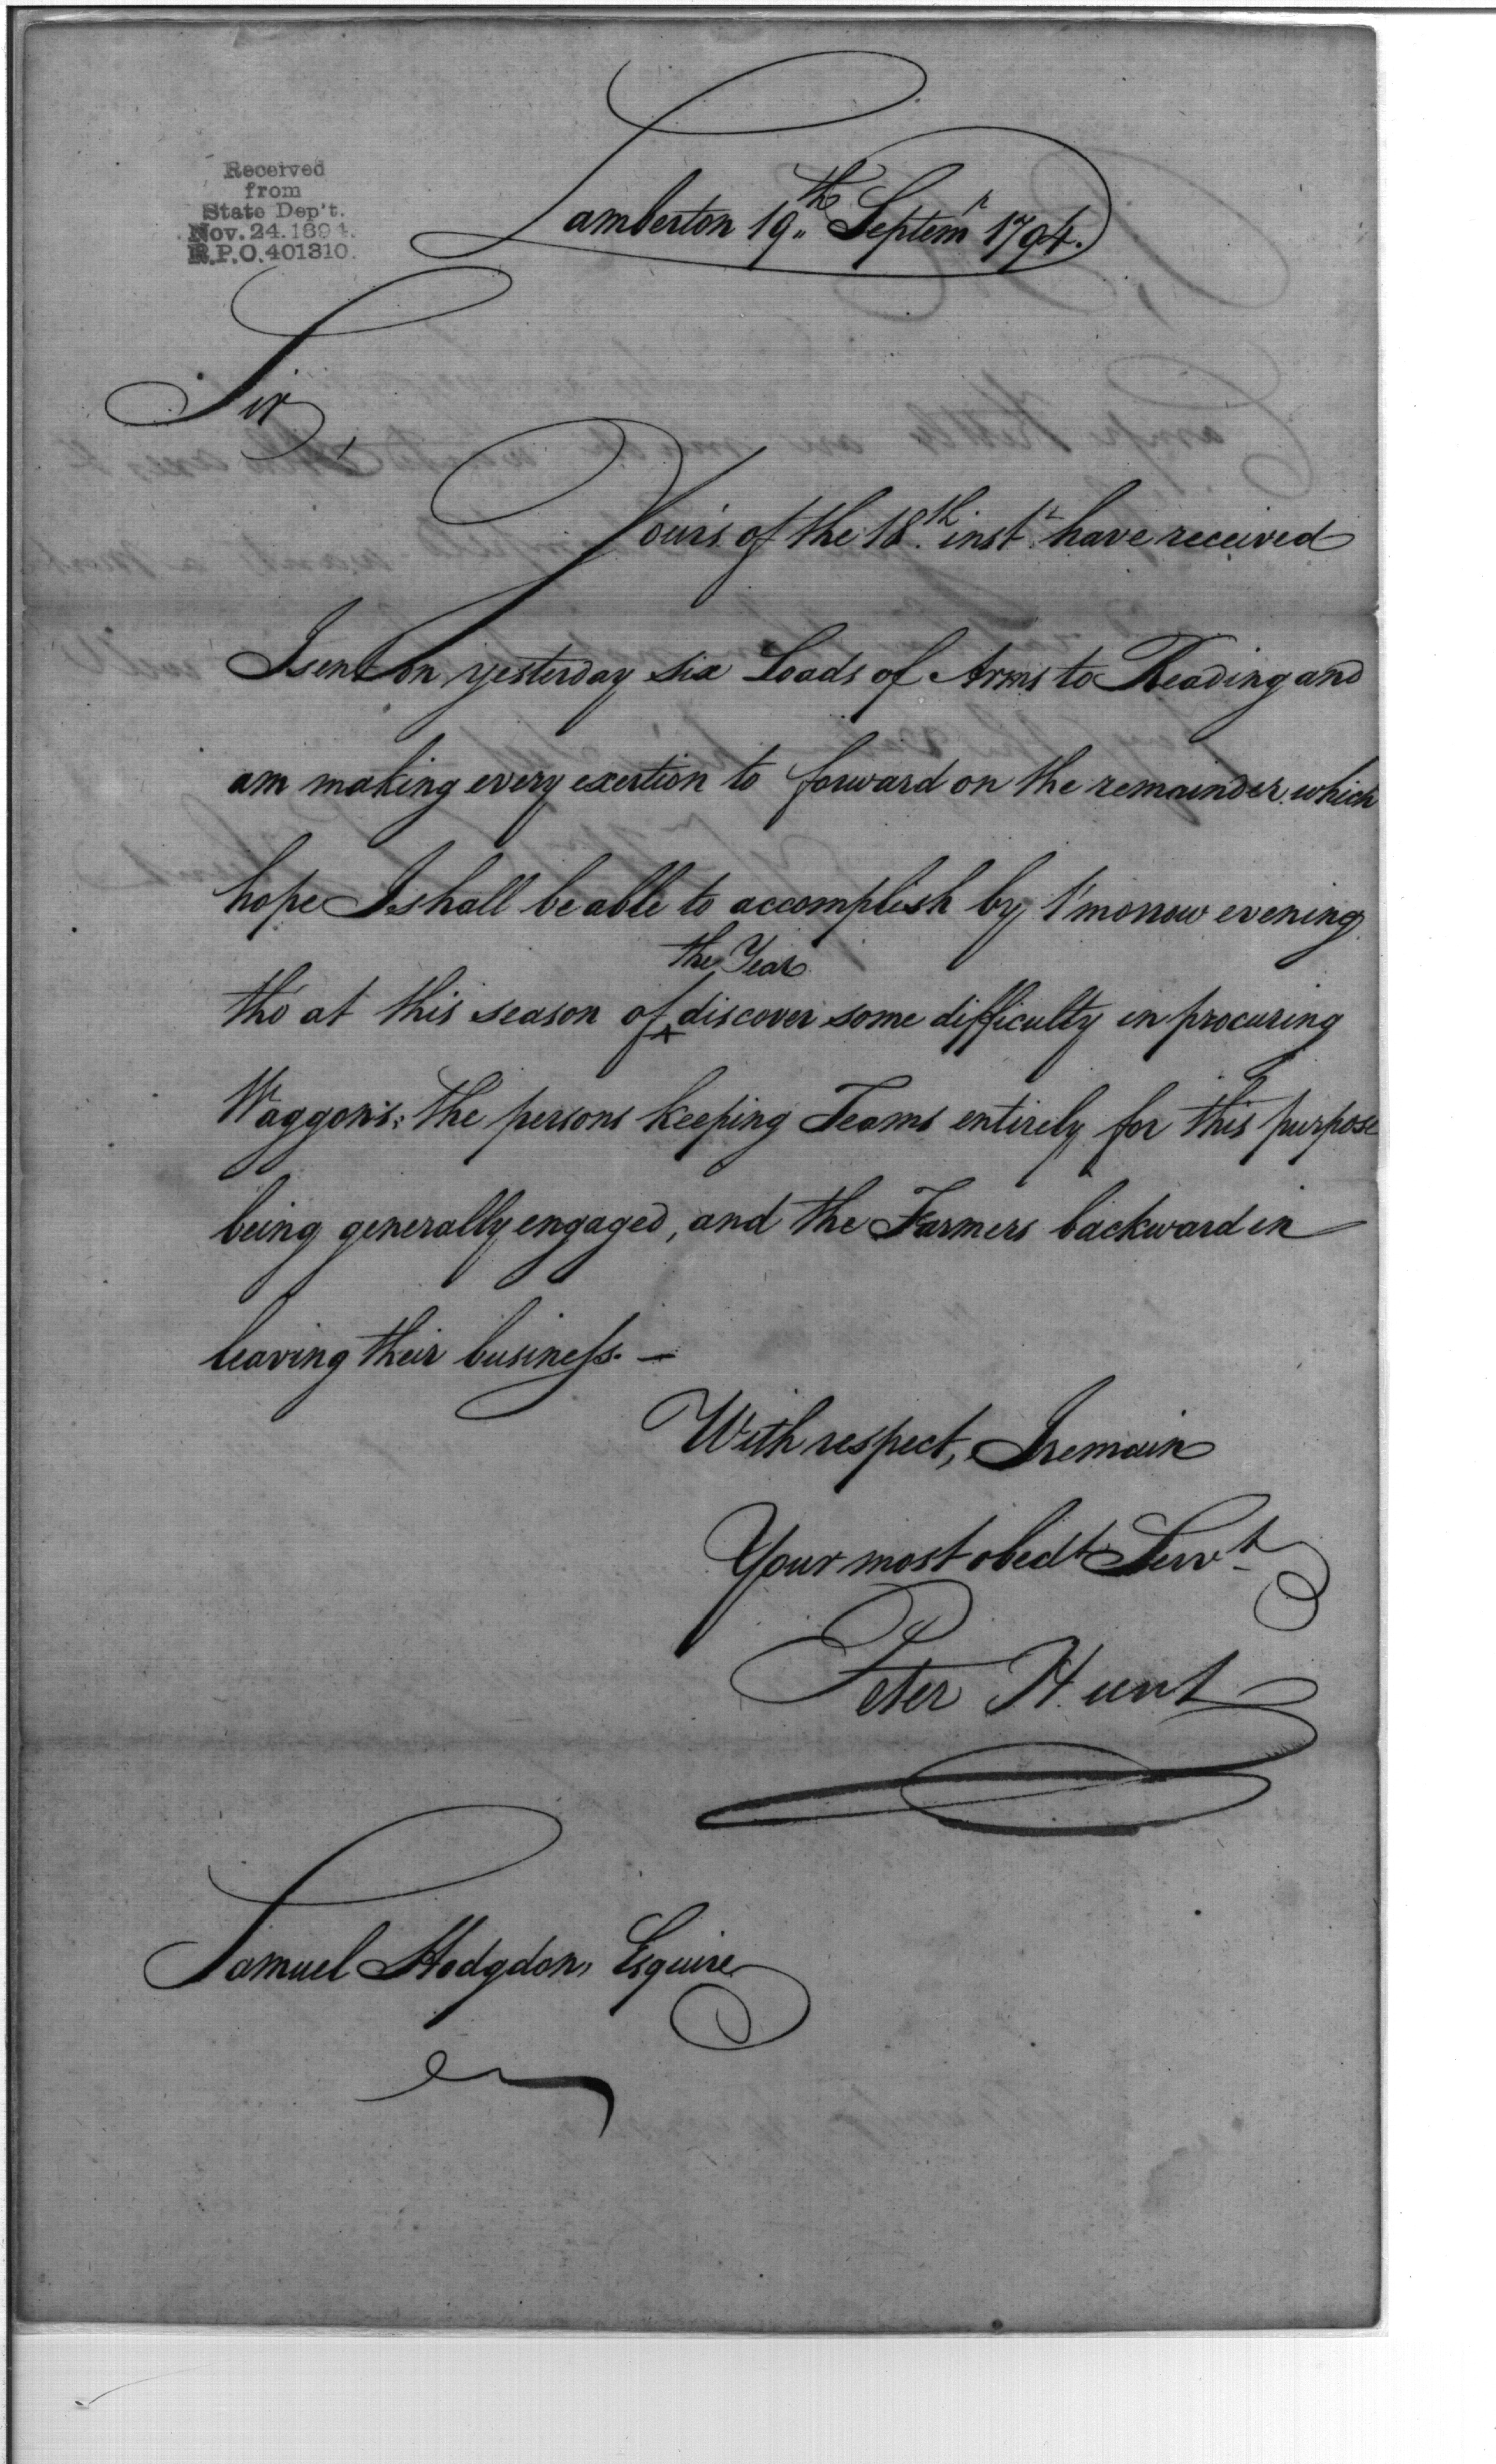 Received
from
State Dep't.
Nov. 24. 1894.
R.P.O. 401310.
Lamberton 19th Septemr 1794.
Sir,
Yours of the 18th inst. have received
I sent on yesterday six Loads of Arms to Reading and
am making every exertion to forward on the remainder which
hope I shall be able to accomplish by t'morrow evening
the Year
tho' at this season of ^ discover some difficulty in procuring
Waggons: the persons keeping Teams entirely for this purpose
being generally engaged, and the Farmers backward in
leaving their business. —
With respect, I remain
Your most obedt Servt
Peter Hunt
Samuel Hodgdon, Esquire